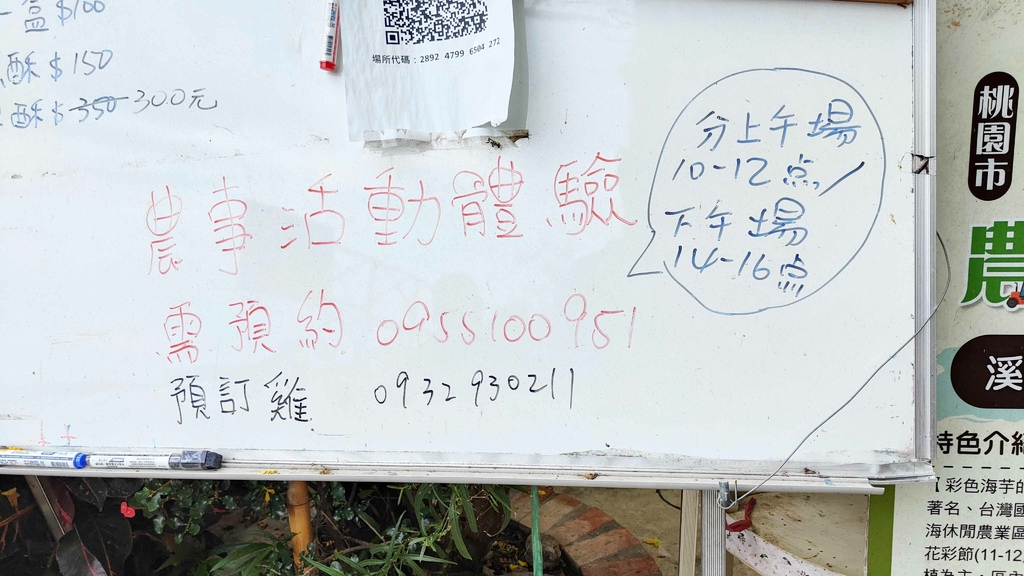 一盒 $100
酥 $150
酥 $350 300元
場所代碼：2892 4799 6504 272
分上午場
10-12点/
下午場
14-16点
農事活動體驗
需預約 0955100951
預訂雞 0932930211
桃園市
農
溪
特色介紹
彩色海芋的
著名、台灣國
海休閒農業區
花彩節(11-12
植為主，區